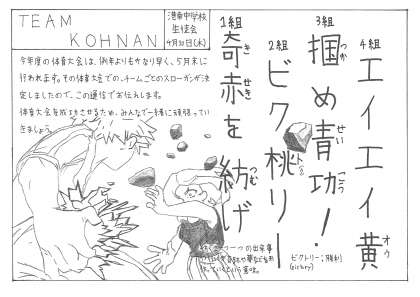 TEAM
KOHNAN
港南中学校
生徒会
今年度の体育大会は、例年よりもかなり早く、5月末に
行われます。その体育大会での、チームごとのスローガンが決
定しましたので、この通信でお伝えします。
体育大会を成功させるため、みんなで一緒に頑張ってい
きましょう。
1組
奇赤を紡げ
きせき つむ
2組
ビク桃リー
ト
3組
掴め青功！
つか せいこう
4組
エイエイ黄
オゥ
一つ一つの出来事
という意味。
ビクトリー：勝利
(victory)